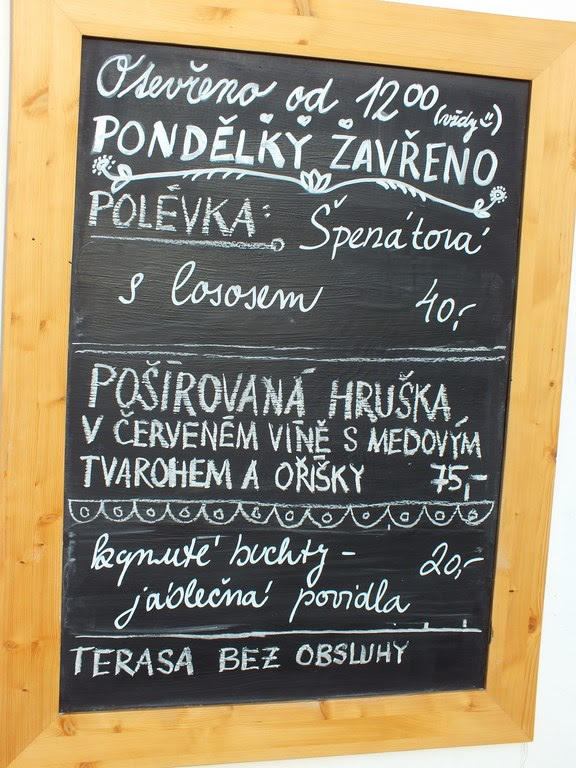 Otevřeno od 12⁰⁰ (vždy☺)
PONDĚLKY ZAVŘENO
POLÉVKA: Špenátová
s lososem 40,-
POŠÍROVANÁ HRUŠKA
V ČERVENÉM VÍNĚ S MEDOVÝM
TVAROHEM A OŘÍŠKY 75,-
kynuté buchty - 20,-
jablečná povidla
TERASA BEZ OBSLUHY